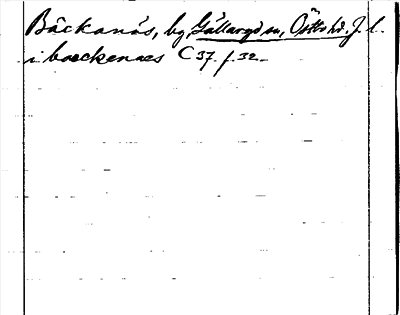 Bäckanäs, by, Gällaryd sn, Östbo hd. J. l.
i bæckenaes C 37. f. 32.